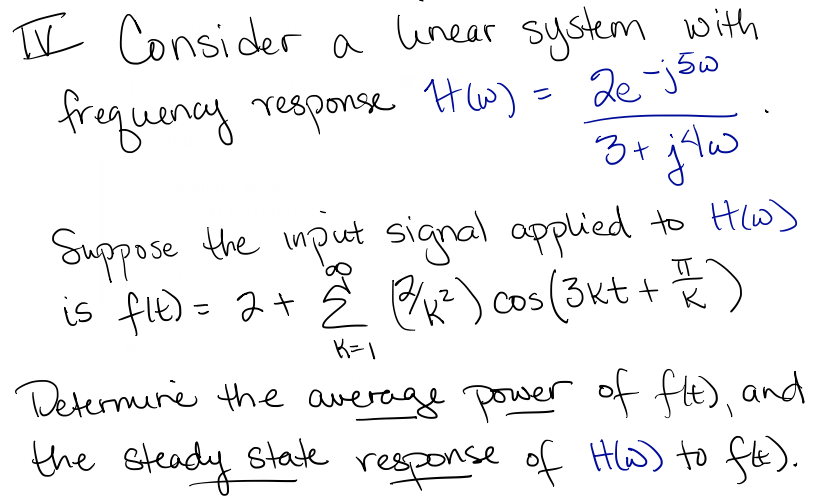 IV Consider a linear system with
frequency response H(ω) = 2e^{-j5ω} / (3 + j4ω) .
Suppose the input signal applied to H(ω)
is f(t) = 2 + ∑_{k=1}^{∞} (2/k²) cos(3kt + π/k)
Determine the average power of f(t), and
the steady state response of H(ω) to f(t).